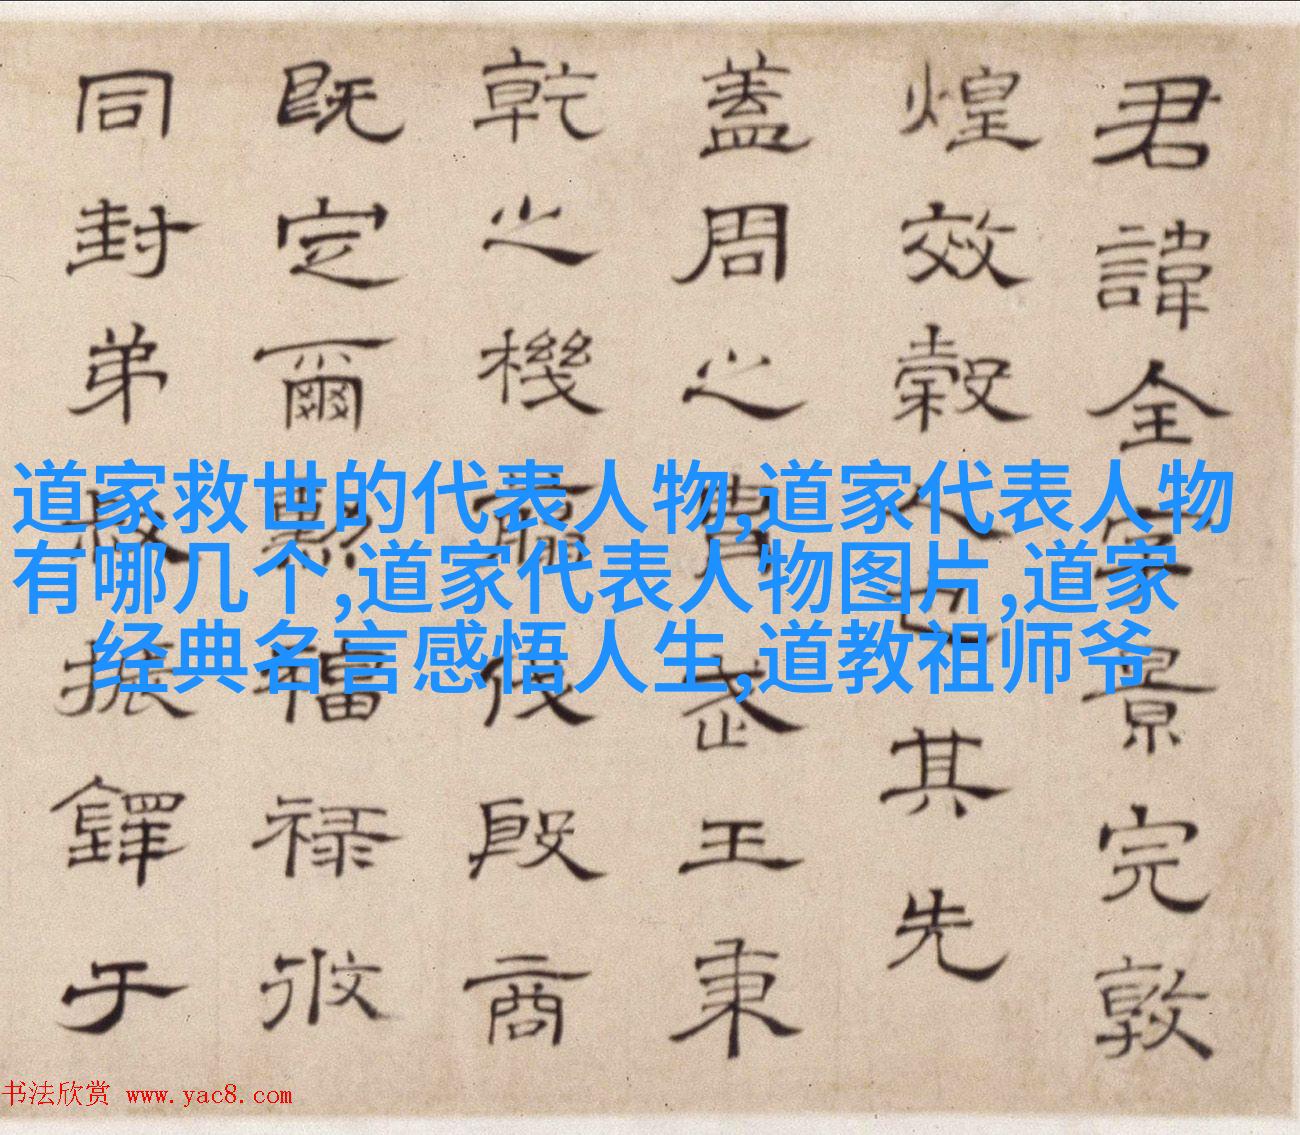 君諱全字景完敦
煌效穀人也其先
蓋周之胄武王秉
乾之機翦伐殷商
既定爾勳福禄攸
同封弟叔振鐸于
道家救世的代表人物,道家代表人物
有哪几个,道家代表人物图片,道家
经典名言感悟人生,道教祖师爷
书法欣赏 www.yac8.com